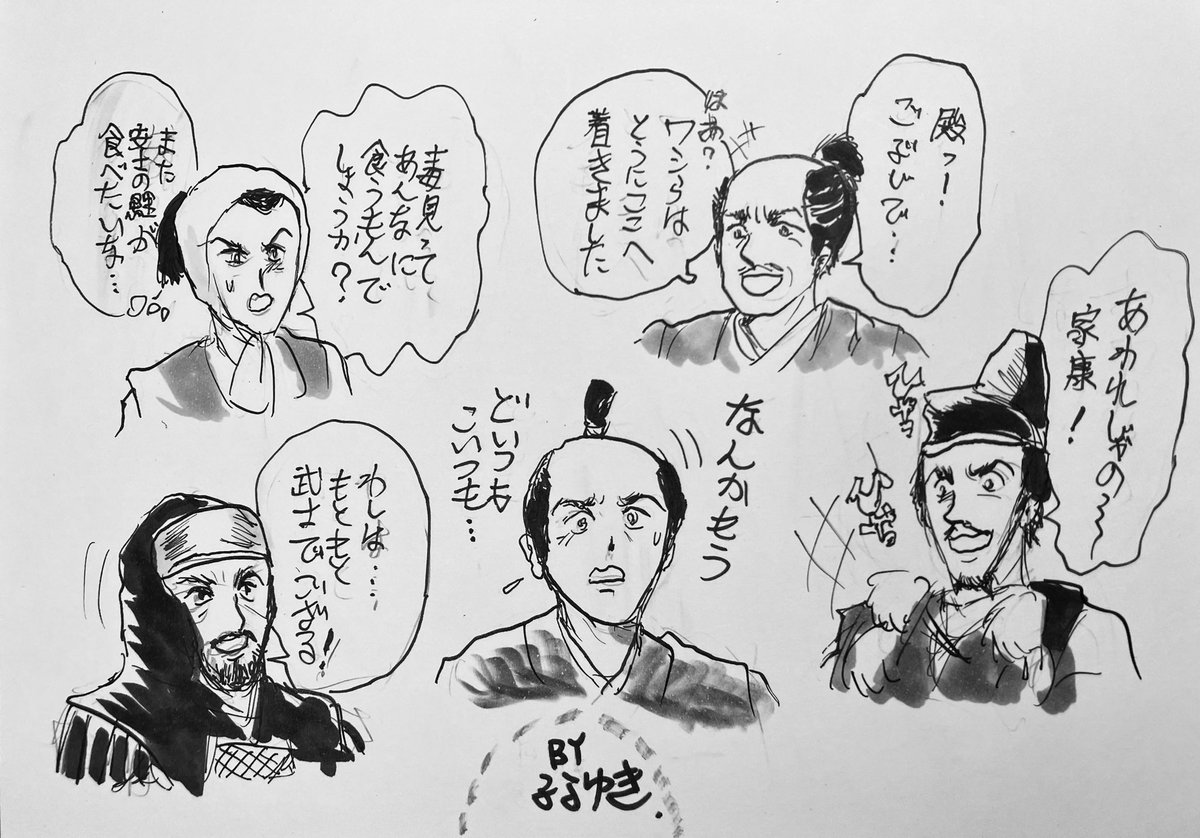 殿っ！
ごぶじで‥
はあ？
ワシらは
とうにここへ
着きました
毒見って
あんなに
食うもんで
しょうか？
また
安土の鯉が
食べたいな…
あわれじゃの〜
家康！
なんかもう
どいつも
こいつも…
わしは……
もともと
武士でござる！
BY
ゆき.